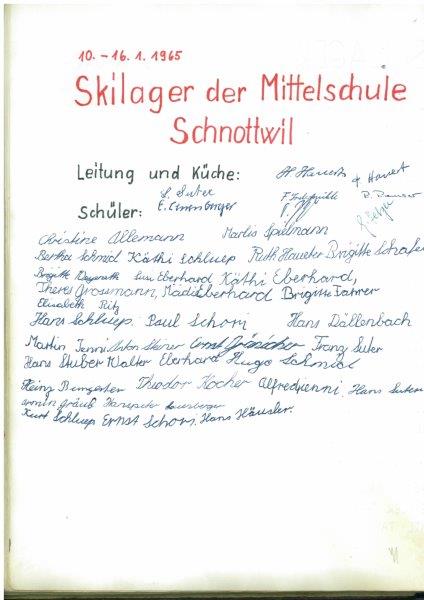 10. – 16. 1. 1965
Skilager der Mittelschule
Schnottwil
Leitung und Küche:
S. Suter
Schüler:
Christine Allemann Marlis Spielmann
Bertha Schmid Käthi Schluep Ruth Haueter Brigitte Schafer
Brigitte Susi Eberhard Käthi Eberhard,
Theres Grossmann, Mädi Eberhard Brigitte Farner
Elisabeth Ritz
Hans Schluep Paul Schori Hans Dällenbach
Martin Jenni Anton Ernst Franz Suter
Hans Stuber Walter Eberhard Hugo Schmid
Heinz Bumgarter Theodor Kocher Alfred Jenni, Hans Suter
Armin Hanspeter
Kurt Schluep Ernst Schori, Hans Häusler.